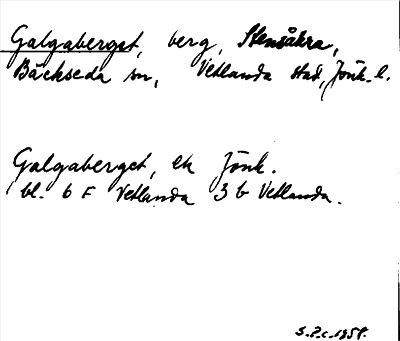 Galgaberget, berg, Stensåkra,
Bäckseda sn, Vetlanda stad, Jönk. l.
Galgaberget, ek Jönk.
bl. 6 F Vetlanda 3 b Vetlanda.
1958.